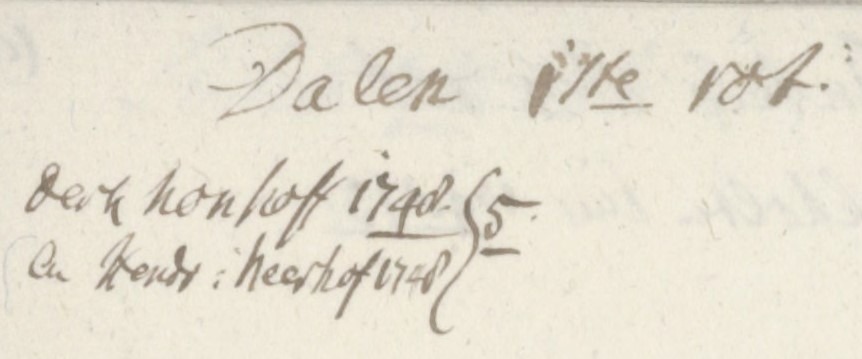 Dalen i7te rot.
Derk honhoff 1748
en Hendr: Neerhof 1748 } 5.